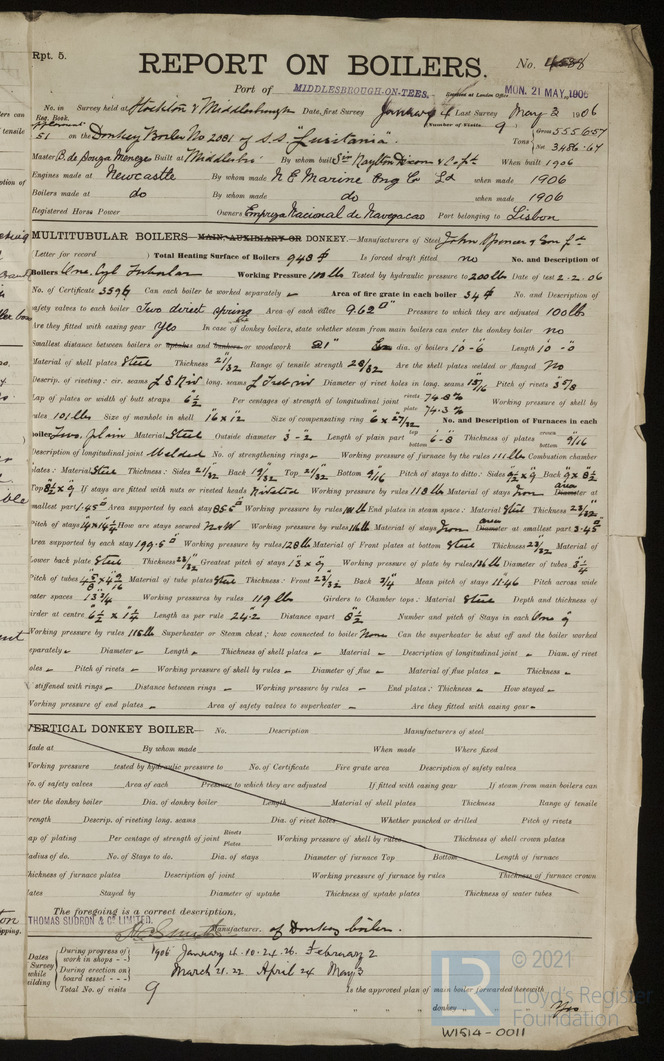 Rpt. 5.
REPORT ON BOILERS.
No.
Port of MIDDLESBROUGH-ON-TEES.
Received at London Office MON. 21 MAY. 1906
No. in Survey held at Stockton & Middlesbrough Date, first Survey January 4 Last Survey May 3 1906
Reg. Book. (Number of Visits 9)
51 on the Donkey Boiler No 2081 of S.S "Lusitania". Tons Gross 5556.57 Net 3486.67
Master B. de Souza Built at Middlesbro' By whom built Sir Raylton Dixon & Co Ld When built 1906
Engines made at Newcastle By whom made N E Marine Eng Co Ld when made 1906
Boilers made at do By whom made do when made 1906
Registered Horse Power Owners Empreza Nacional de Navegacao Port belonging to Lisbon
MULTITUBULAR BOILERS MAIN, AUXILIARY OR DONKEY.—Manufacturers of Steel John Spencer & Son Ld
(Letter for record ) Total Heating Surface of Boilers 943 Is forced draft fitted no No. and Description of
Boilers One. Cyl Tubular Working Pressure 100 lbs Tested by hydraulic pressure to 200 lbs Date of test 2.2.06
No. of Certificate 3596 Can each boiler be worked separately Area of fire grate in each boiler 34 No. and Description of
safety valves to each boiler Two direct spring Area of each valve 9.62" Pressure to which they are adjusted 100 lbs
Are they fitted with easing gear Yes In case of donkey boilers, state whether steam from main boilers can enter the donkey boiler no
Smallest distance between boilers or uptakes and bunkers or woodwork 21" dia. of boilers 10-6 Length 10-0
Material of shell plates Steel Thickness 21/32 Range of tensile strength 28/32 Are the shell plates welded or flanged No
Descrip. of riveting: cir. seams L S Riv long. seams L Treb riv Diameter of rivet holes in long. seams 15/16 Pitch of rivets 3 5/8
Lap of plates or width of butt straps 6 1/2 Per centages of strength of longitudinal joint rivets 74.8% plate 74.3% Working pressure of shell by
rules 101 lbs Size of manhole in shell 16 x 12 Size of compensating ring 6 x 27/32 No. and Description of Furnaces in each
boiler Two, plain Material Steel Outside diameter 3-2 Length of plain part top bottom 6-8 Thickness of plates crown bottom 9/16
Description of longitudinal joint Welded No. of strengthening rings Working pressure of furnace by the rules 111 lbs Combustion chamber
plates: Material Steel Thickness: Sides 21/32 Back 19/32 Top 21/32 Bottom 9/16 Pitch of stays to ditto: Sides 8 1/2 x 9 Back 9 x 8 1/2
Top 8 1/2 x 9 If stays are fitted with nuts or riveted heads Riveted Working pressure by rules 113 lbs Material of stays Iron area Diameter at
smallest part 1.45 Area supported by each stay 85.5 Working pressure by rules 101 lb End plates in steam space: Material Steel Thickness 23/32
Pitch of stays 14 x 14 1/4 How are stays secured N&W Working pressure by rules 116 lb Material of stays Iron area Diameter at smallest part 3.45
Area supported by each stay 199.5 Working pressure by rules 128 lb Material of Front plates at bottom Steel Thickness 23/32 Material of
Lower back plate Steel Thickness 23/32 Greatest pitch of stays 13 x 9 Working pressure of plate by rules 136 lb Diameter of tubes 3 1/4
Pitch of tubes 4 5/8 x 4 9/16 Material of tube plates Steel Thickness: Front 23/32 Back 3/4 Mean pitch of stays 11.46 Pitch across wide
water spaces 13 3/4 Working pressures by rules 119 lbs Girders to Chamber tops: Material Steel Depth and thickness of
girder at centre 6 1/2 x 1 1/4 Length as per rule 24.2 Distance apart 8 1/2 Number and pitch of Stays in each One 9
Working pressure by rules 115 lb Superheater or Steam chest; how connected to boiler None Can the superheater be shut off and the boiler worked
separately Diameter Length Thickness of shell plates Material Description of longitudinal joint Diam. of rivet
holes Pitch of rivets Working pressure of shell by rules Diameter of flue Material of flue plates Thickness
If stiffened with rings Distance between rings Working pressure by rules End plates: Thickness How stayed
Working pressure of end plates Area of safety valves to superheater Are they fitted with easing gear
VERTICAL DONKEY BOILER— No. Description Manufacturers of steel
Made at By whom made When made Where fixed
Working pressure tested by hydraulic pressure to No. of Certificate Fire grate area Description of safety valves
No. of safety valves Area of each Pressure to which they are adjusted If fitted with easing gear If steam from main boilers can
enter the donkey boiler Dia. of donkey boiler Length Material of shell plates Thickness Range of tensile
strength Descrip. of riveting long. seams Dia. of rivet holes Whether punched or drilled Pitch of rivets
Lap of plating Per centage of strength of joint Rivets Plates Working pressure of shell by rules Thickness of shell crown plates
Radius of do. No. of Stays to do. Dia. of stays Diameter of furnace Top Bottom Length of furnace
Thickness of furnace plates Description of joint Working pressure of furnace by rules Thickness of furnace crown
plates Stayed by Diameter of uptake Thickness of uptake plates Thickness of water tubes
The foregoing is a correct description,
THOMAS SUDRON & CO LIMITED.
Manufacturer. of Donkey boiler.
Dates of Survey while building
During progress of work in shops - - 1906 January 4.10.24.26. February 2
During erection on board vessel - - - March 21.22 April 24 May 3
Total No. of visits 9
Is the approved plan of main boiler forwarded herewith
" " " donkey " " " Yes
W1514-0011
© 2021
LR
Lloyd's Register
Foundation